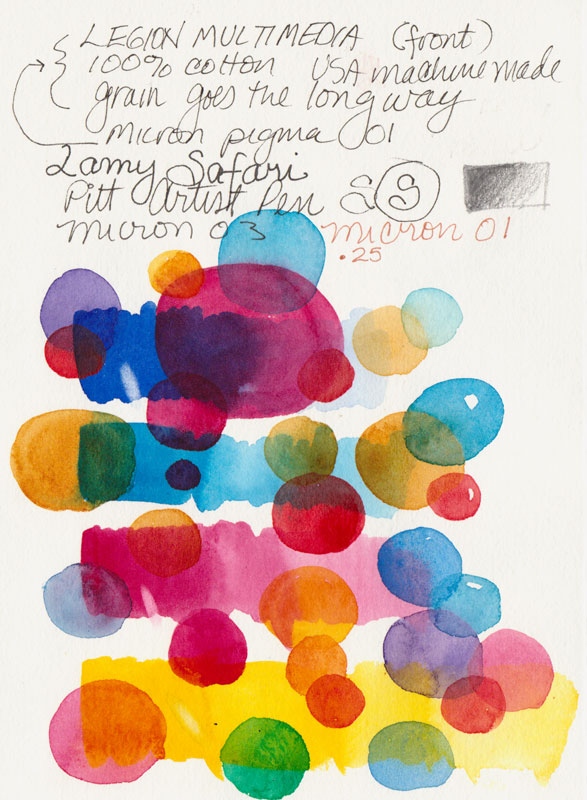 LEGION MULTIMEDIA (front)
100% cotton USA machine made
grain goes the long way
micron pigma 01
Lamy Safari
Pitt Artist Pen S S
micron 03 micron 01
.25